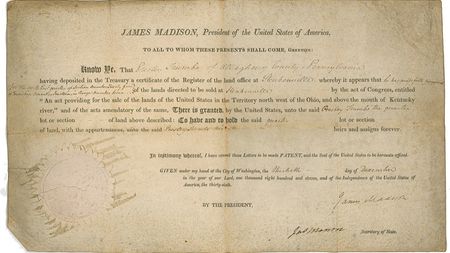 JAMES MADISON, President of the United States of America,
TO ALL TO WHOM THESE PRESENTS SHALL COME, GREETING:
Know Ye, That of Allegheny County Pennsylvania
having deposited in the Treasury a certificate of the Register of the land office at Steubenville whereby it appears that
of the lands directed to be sold at Steubenville by the act of Congress, entitled
"An act providing for the sale of the lands of the United States in the Territory north west of the Ohio, and above the mouth of Kentucky
river," and of the acts amendatory of the same, There is granted, by the United States, unto the said the quarter
lot or section of land above described: To have and to hold the said quarter lot or section
of land, with the appurtenances, unto the said heirs and assigns forever.
In testimony whereof, I have caused these Letters to be made PATENT, and the Seal of the United States to be hereunto affixed.
GIVEN under my hand at the City of Washington, the day of December
in the year of our Lord, one thousand eight hundred and eleven, and of the Independence of the United States
of America, the thirty-sixth.
BY THE PRESIDENT, James Madison
Jas Monroe Secretary of State.